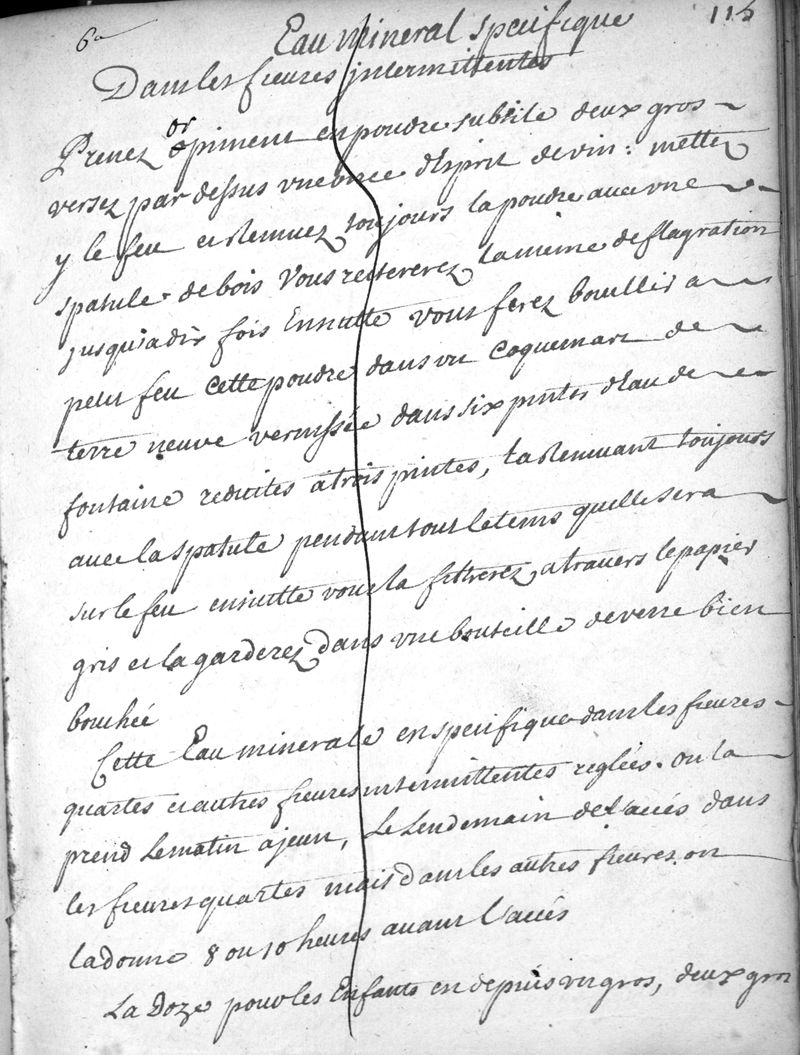 6e
115
Eau mineral specifique
Dans les fievres jntermittentes
Prenez orpiment en poudre subtile deux gros ~
versez par dessus vne d'Esprit de vin : mettez
y le feu et Remuez toujours la poudre avec vne
spatule de bois Vous reitererez la méme deflagration
jusqu'a dix fois Ensuitte vous ferez bouillir a ~
petit feu cette poudre dans vn Coquemart de ~
terre neuve vernissée dans six pintes d'Eau de
fontaine reduites a trois pintes, la Remuant toujours
avec la spatule pendant tout le tems quelle sera
sur le feu ensuitte vous la filtrerez a travers le papier
gris et la garderez dans vne bouteille de verre bien
bouchée
Cette Eau minerale en specifique dans les fievres -
quartes et autres fievres intermittentes reglées. on la
prend le matin a jeun, le Lendemain de l'accés dans
les fievres quartes mais dans les autres fievres on
la donne 8 ou 10 heures avant l'accés
La Doze pour les Enfants en depuis vn gros, deux gros